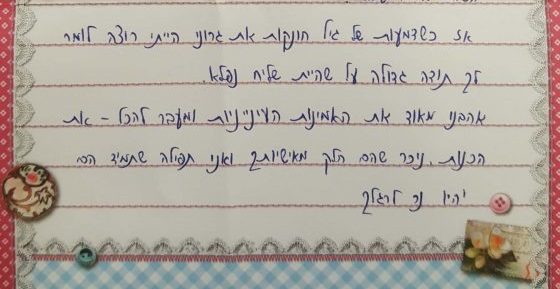 אז כשדמעות של גיל חונקות את גרוני הייתי רוצה לומר
לך תודה גדולה על שהיית שליח נפלא.
אהבנו מאוד את האמינות העינייניות ומעבר להכל - את
הכנות. ניכר שהם חלק מאישיותך ואני תפילה שתמיד הם
יהיו נר לרגלך